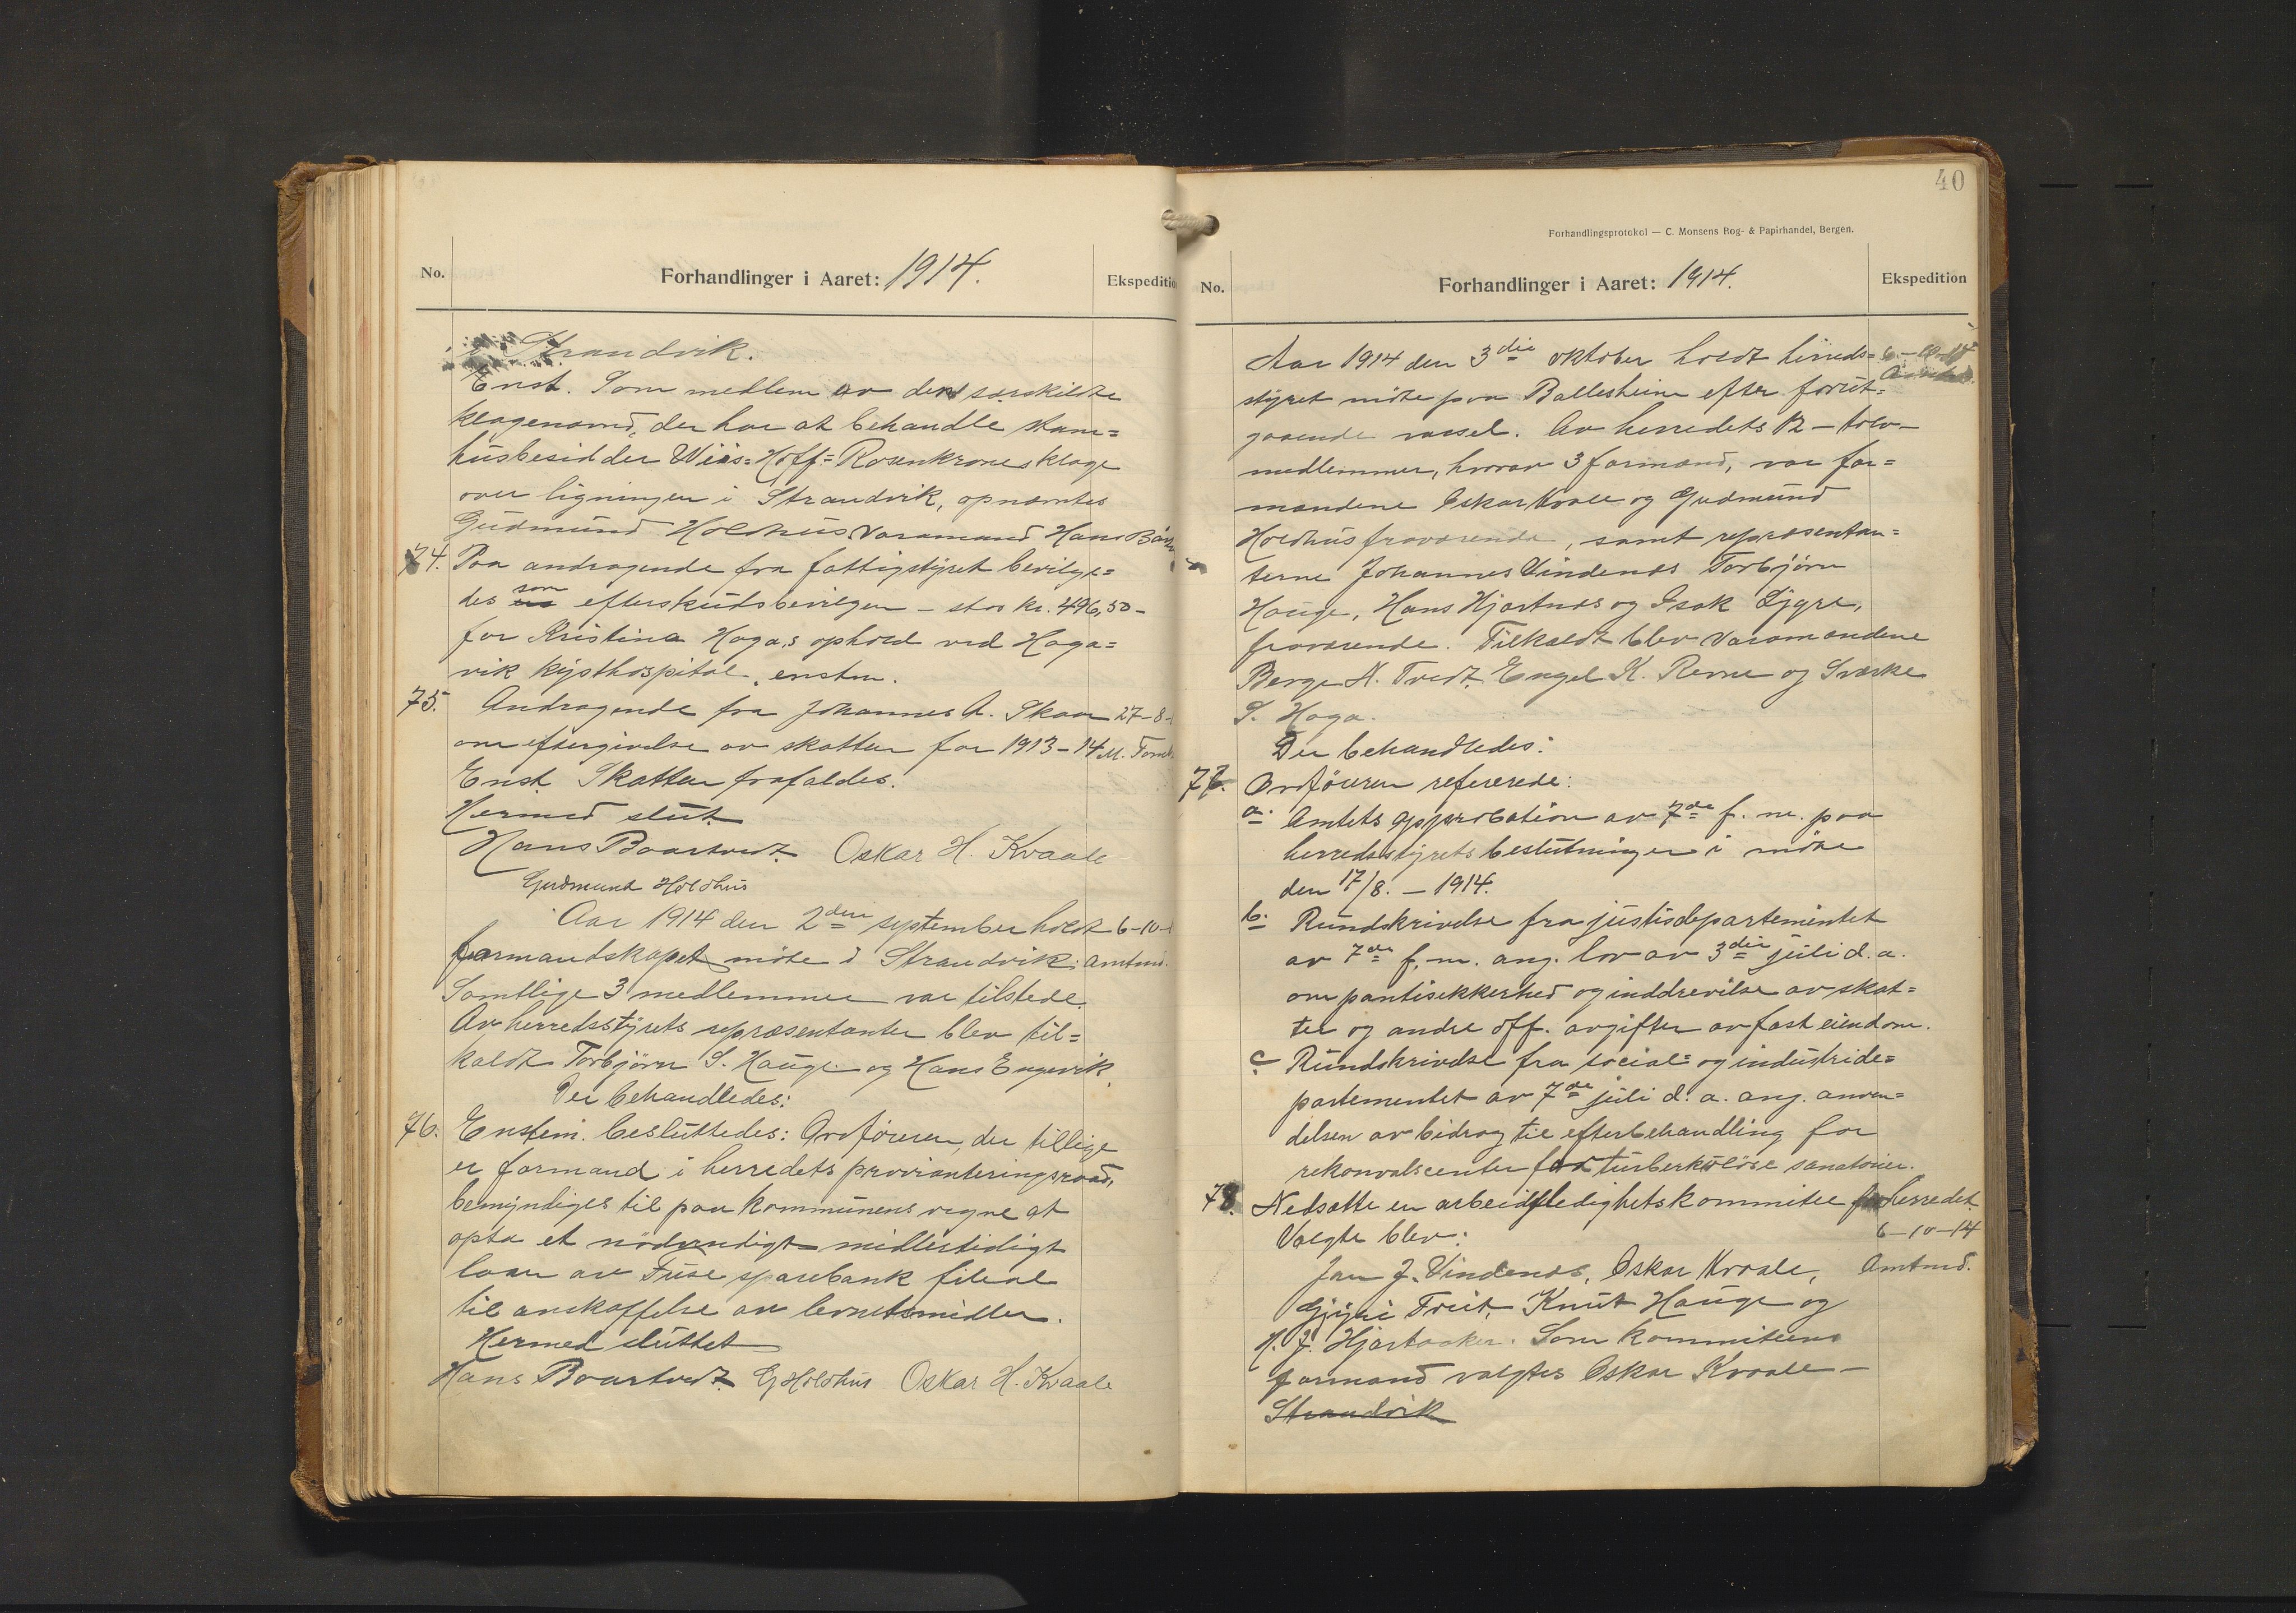 No.
Forhandlinger i Aaret: 1914.
Ekspeditio
i Strandvik.
Enst. Som medlem av den særskilte
klagenemd, der har at behandle stam=
husbesidder Weis=Hoff=Rosenkrones klage
over ligningen i Strandvik, opnævntes
Gudmund Holdhus Varamand Hans
74. Paa andragende fra fattigstyret bevilge=
des som efterskudsbevilgen – stor kr. 496,50 –
for Kristina Haga,s ophold ved Haga=
vik kysthospital, enstm.
75. Andragende fra Johannes A. Skaar 27-8-
om eftergivelse av skatten for 1913-14 M.
Enst. Skatten frafaldes.
Hermed slut.
Hans Baartvedt. Oskar H. Kvaale
Gudmund Holdhus
Aar 1914 den 2den september holdt 6-10-
formandskapet møte i Strandvik. Amtmd.
Samtlige 3 medlemmer var tilstede.
Av herredsstyrets repræsentanter blev til=
kaldt Torbjørn S. Hauge og Hans Engevik.
Der behandledes:
76. Enstem. besluttedes: Ordføreren, der tillige
er formand i herredets provianteringsraad,
bemyndiges til paa kommunens vegne at
opta et nødvendigt midlertidigt
laan av Fuse sparebank filial
til anskaffelse av levnetsmidler.
Hermed sluttet
Hans Baartvedt. G Holdhus Oskar H. Kvaale
40
Forhandlingsprotokol — C. Monsens Bog- & Papirhandel, Bergen.
No.
Forhandlinger i Aaret: 1914.
Ekspedition
Aar 1914 den 3die oktober holdt herreds= 6-10-14
styret møte paa Ballesheim efter forut=
gaaende varsel. Av herredets 12 – tolv –
medlemmer, hvorav 3 formænd, var for=
mændene Oskar Kvale og Gudmund
Holdhus fraværende, samt repræsentan=
terne Johannes Vindenes Torbjørn
Hauge, Hans Hjartnes og Isak Lygre,
fraværende. Tilkaldt blev varamændene
Berge N. Tvedt, Engel K. Revne og Sværke
S. Haga.
Der behandledes:
77. Ordføreren refererede:
a. Amtets approbation av 7de f. m. paa
herredsstyrets beslutninger i møte
den 17/8. – 1914.
b. Rundskrivelse fra justisdepartementet
av 7de f. m. ang. lov av 3die juli d. a.
om pantsikkerhed og inddrivelse av skat=
ter og andre off. avgifter av fast eiendom.
c. Rundskrivelse fra social= og industride=
partementet av 7de juli d. a. ang. anven=
delsen av bidrag til efterbehandling for
rekonvalscenter fra turberkuløse sanatorier.
78. Nedsatte en arbeidsledighetskommitee for herredet.
Valgte blev: 6-10-14
Jan J. Vindenes, Oskar Kvaale, Amtmd.
Gjøri Tveit, Knut Hauge og
N. J. Hjartaaker. Som kommiteens
formand valgtes Oskar Kvaale –
Strandvik